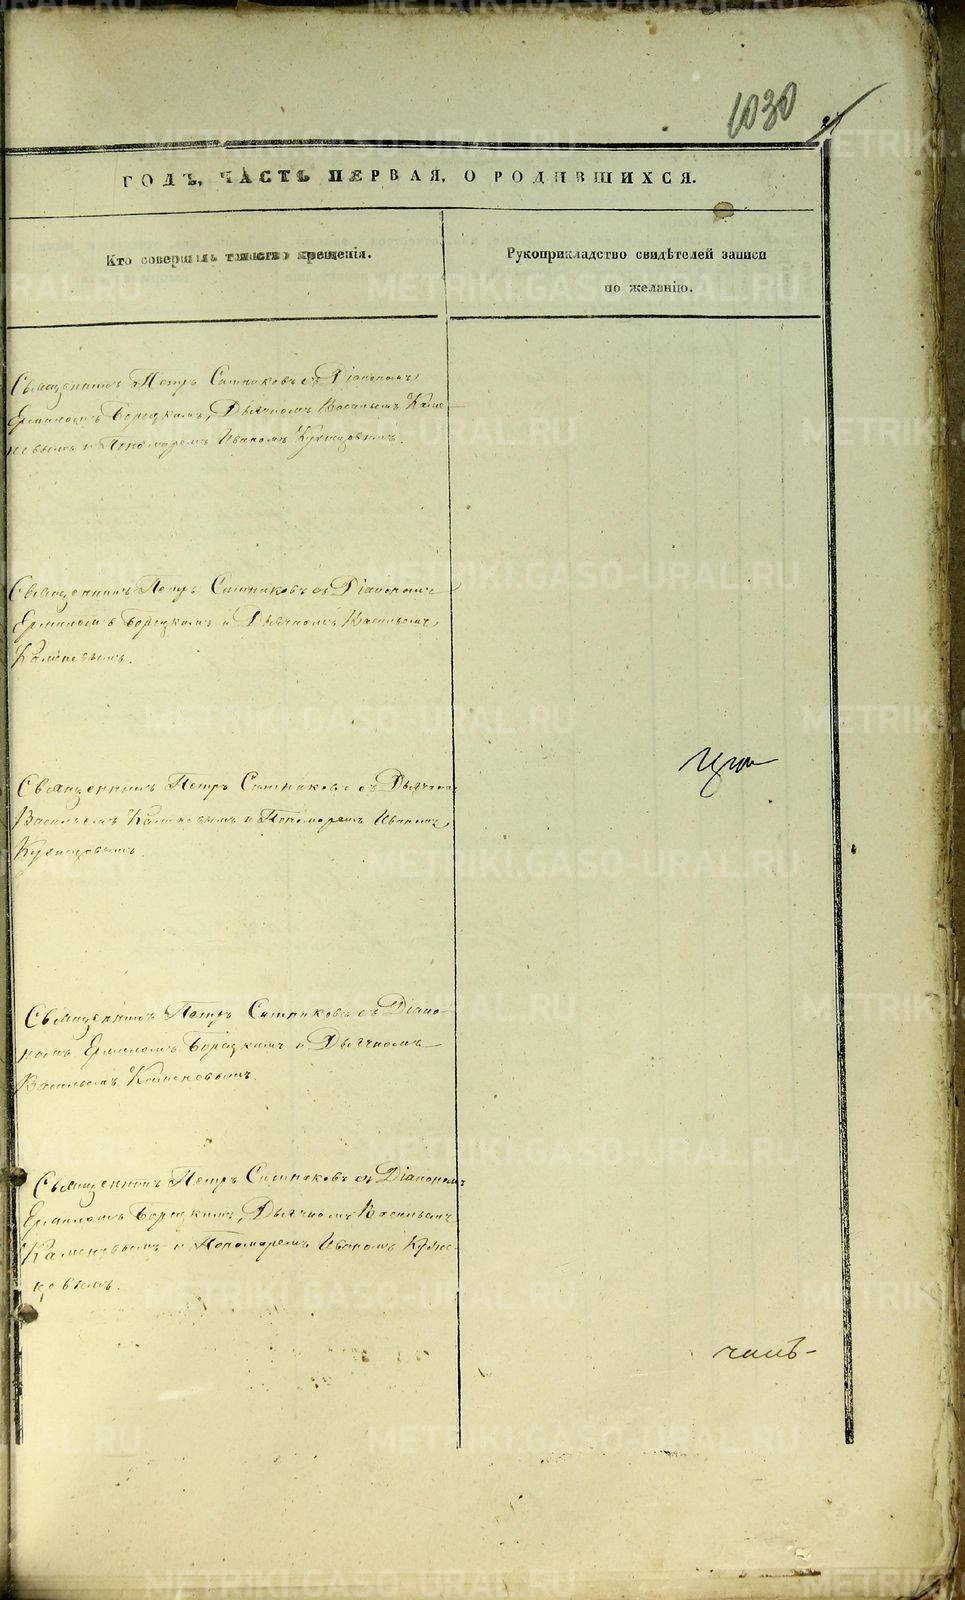 1030
ГОДЪ, ЧАСТЬ ПЕРВАЯ, О РОДИВШИХСЯ.
Кто совершалъ таинство крещенія.
Рукоприкладство свидѣтелей записи
по желанію.
Священникъ Петръ Ситниковъ съ Діакономъ
Ермиломъ Борецкимъ, Дьячкомъ Васильемъ Каме-
невымъ и Пономаремъ Иваномъ Кузнецовымъ.
Священникъ Петръ Ситниковъ съ Діакономъ
Ермиломъ Борецкимъ и Дьячкомъ Васильемъ
Каменевымъ.
Священникъ Петръ Ситниковъ съ Дьячком
Васильемъ Каменевымъ и Пономаремъ Иваномъ
Кузнецовымъ.
Священникъ Петръ Ситниковъ съ Діако-
номъ Ермиломъ Борецкимъ и Дьячкомъ
Васильемъ Каменевымъ.
Священникъ Петръ Ситниковъ съ Діакономъ
Ермиломъ Борецкимъ, Дьячкомъ Васильемъ
Каменевымъ и Пономаремъ Иваномъ Кузне-
цовымъ.
METRIKI.GASO-URAL.RU